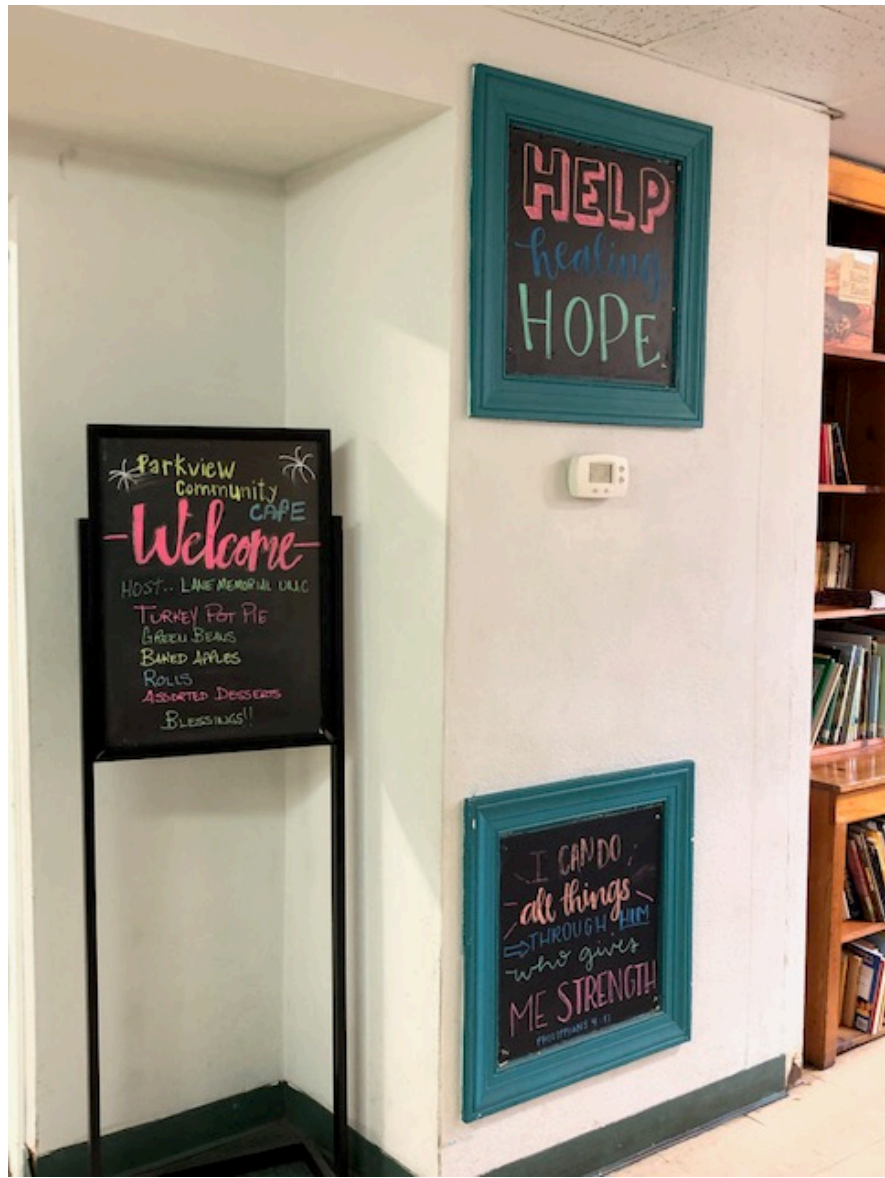 Parkview
Community
CAFE
Welcome
HOST.. LANE MEMORIAL UMC
TURKEY POT PIE
GREEN BEANS
BAKED APPLES
ROLLS
ASSORTED DESSERTS
BLESSINGS!!
HELP
healing
HOPE
I CAN DO
all things
THROUGH HIM
who gives
ME STRENGTH